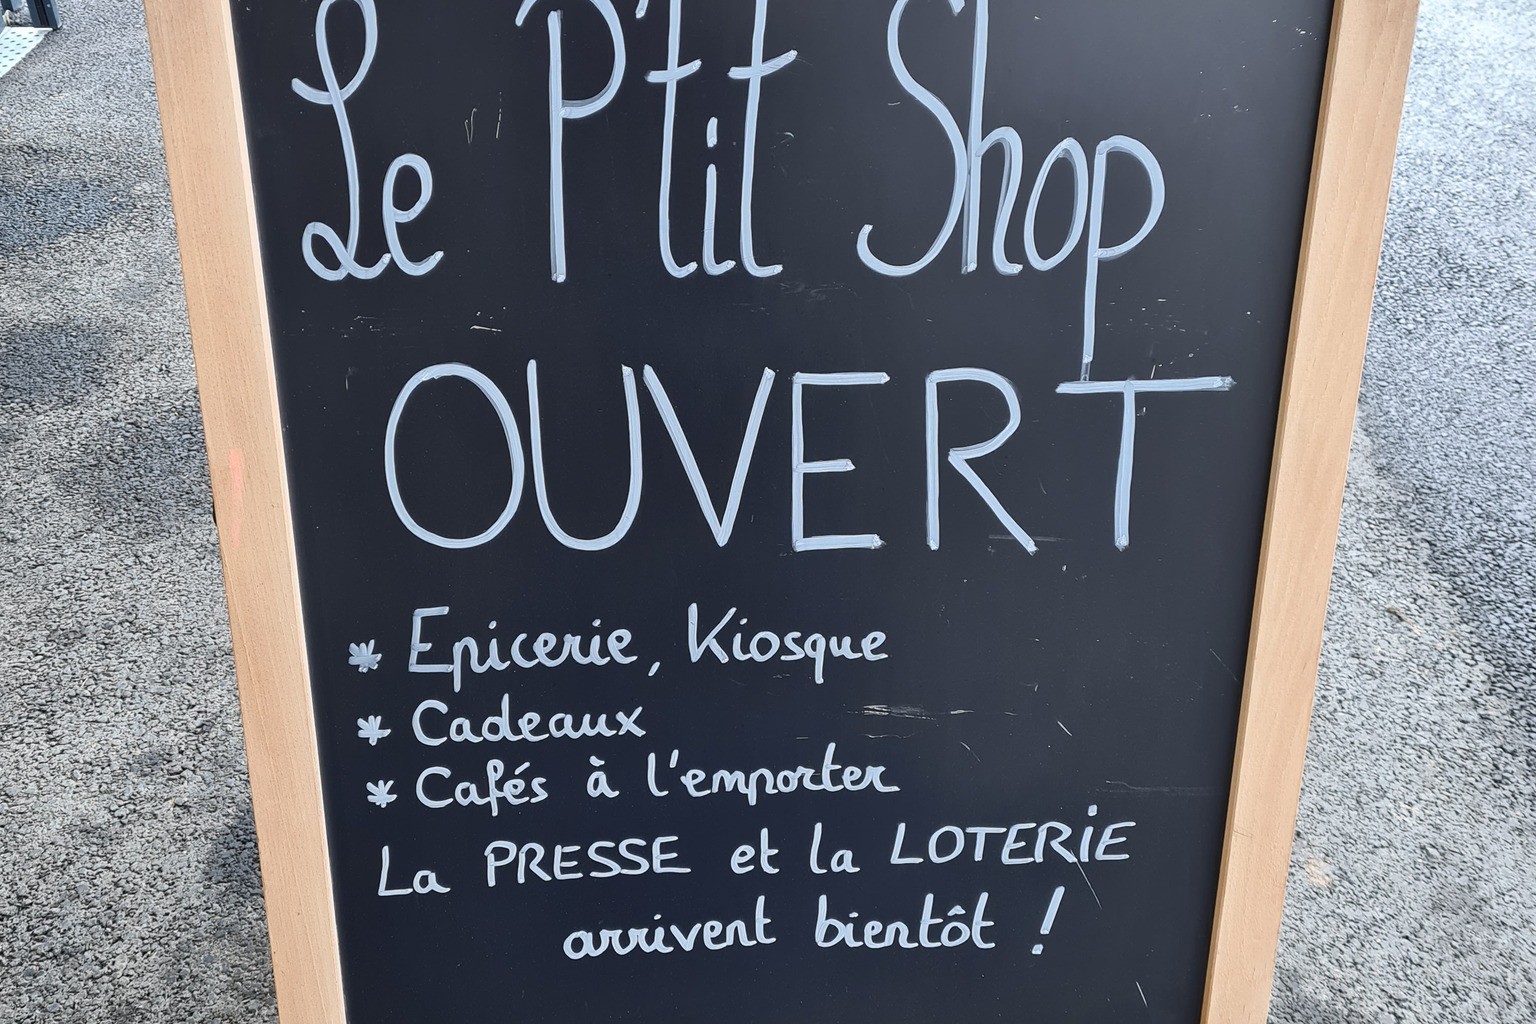 Le P'tit Shop
OUVERT
* Epicerie, Kiosque
* Cadeaux
* Cafés à l'emporter
La PRESSE et la LOTERIE
arrivent bientôt !